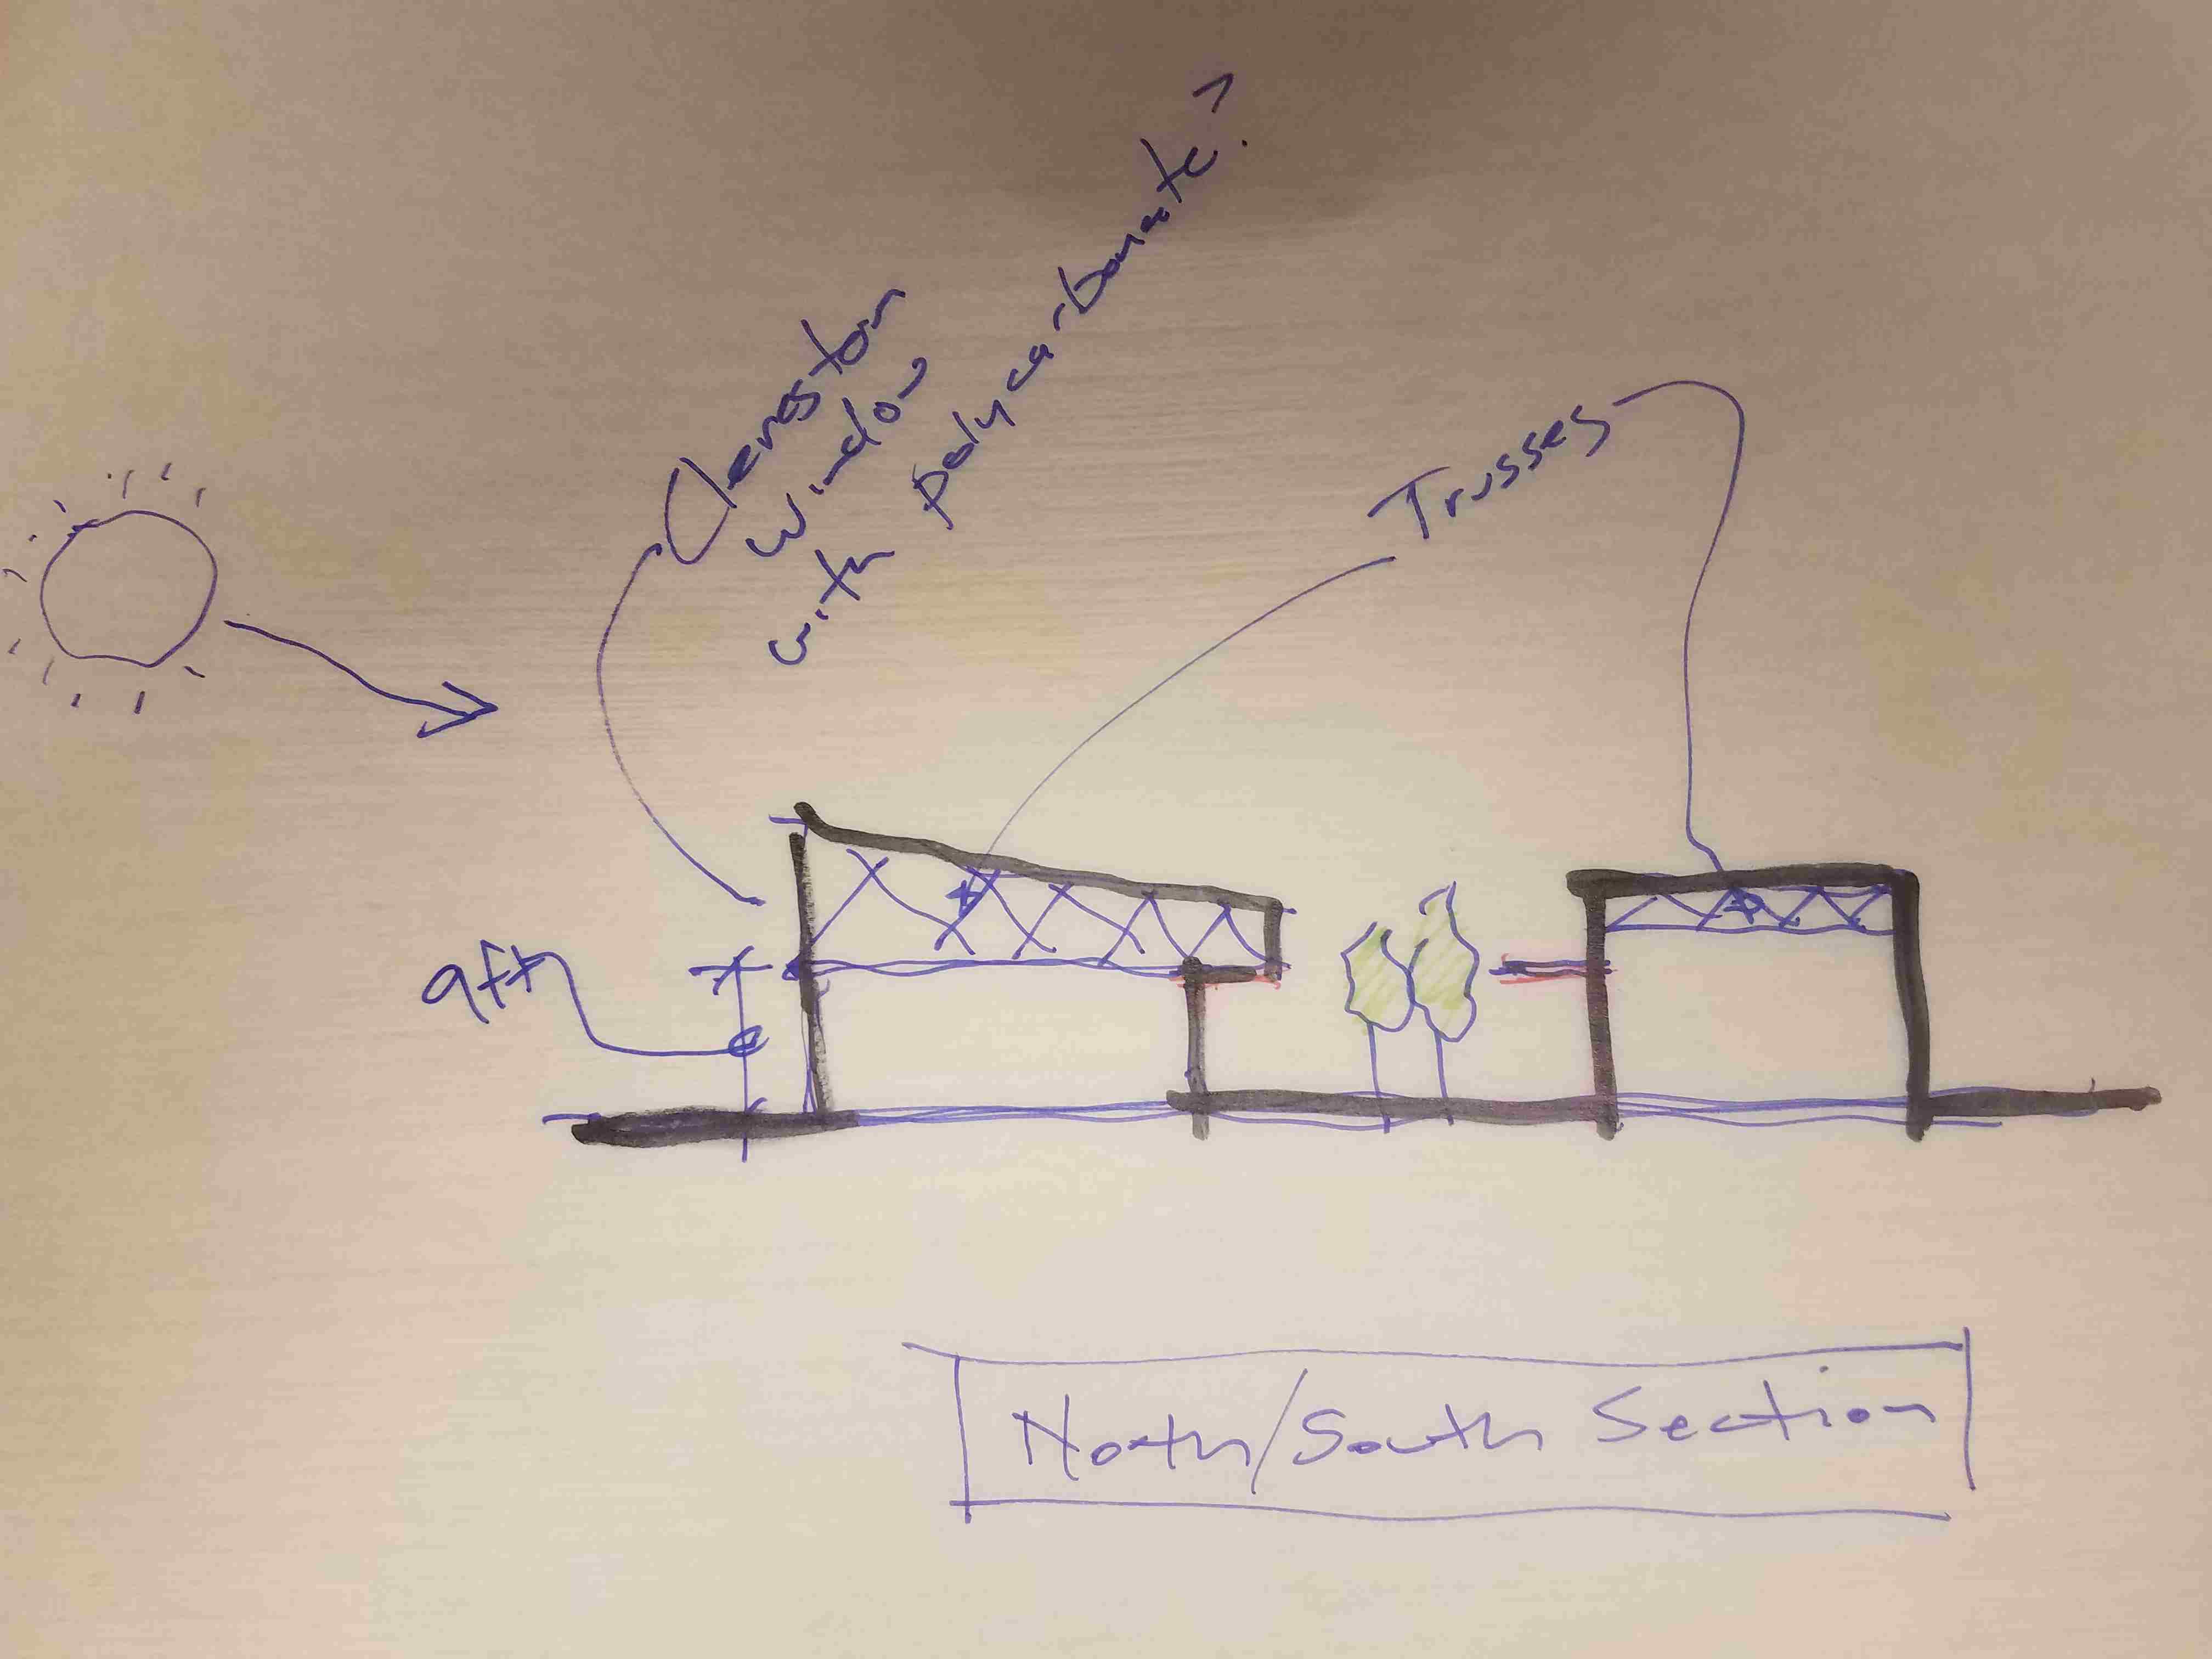 Clerestory
window
with polycarbonate?
Trusses
9ft
North/South Section